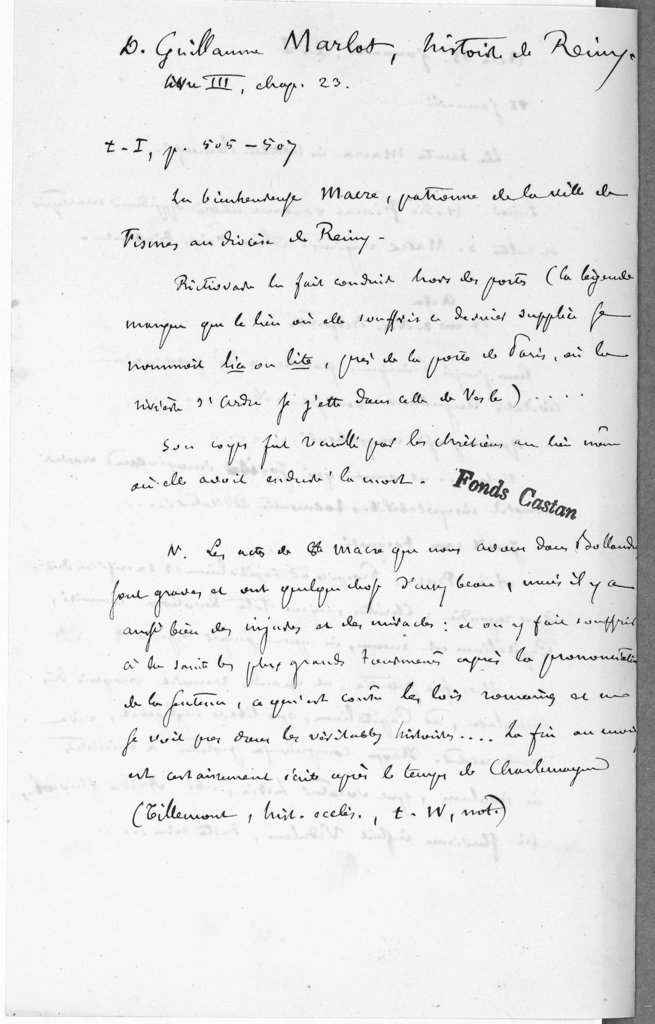 D. Guillaume Marlot, histoire de Reims.
livre III, chap. 23.
t. I, p. 505 – 507
La bienheureuse Macre, patronne de la ville de
Fismes au diocèse de Reims.
Rictiovare la fait conduire hors des portes (la légende
marque que le lieu où elle souffrit ce dernier supplice se
nommoit lica ou lite, près de la porte de Paris, où la
rivière d'Ardre se jette dans celle de Vesle) . . . .
Son corps fut recueilli par les chrétiens au lieu même
où elle avoit enduré la mort.
Fonds Castan
N. Les actes de Ste Macre que nous avons dans Bollandus
sont graves et ont quelque chose d'assez beau, mais il y a
aussi bien des injures et des miracles : et on y fait souffrir
à la sainte les plus grands tourments après la prononciation
de la sentence, ce qui est contre les lois romaines et ne
se voit pas dans les véritables histoires.... La fin au moins
est certainement écrite après le temps de Charlemagne
(Tillemont, hist. ecclés., t. IV, not.)